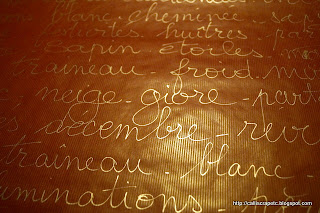 blanc, cheminée - sap
huîtres par
sapin étoiles - mo
traîneau - froid - mo
neige - gibre - part
s décembre - rev
traîneau - blanc -
uminations - 
http://calliscrapetc.blogspot.com